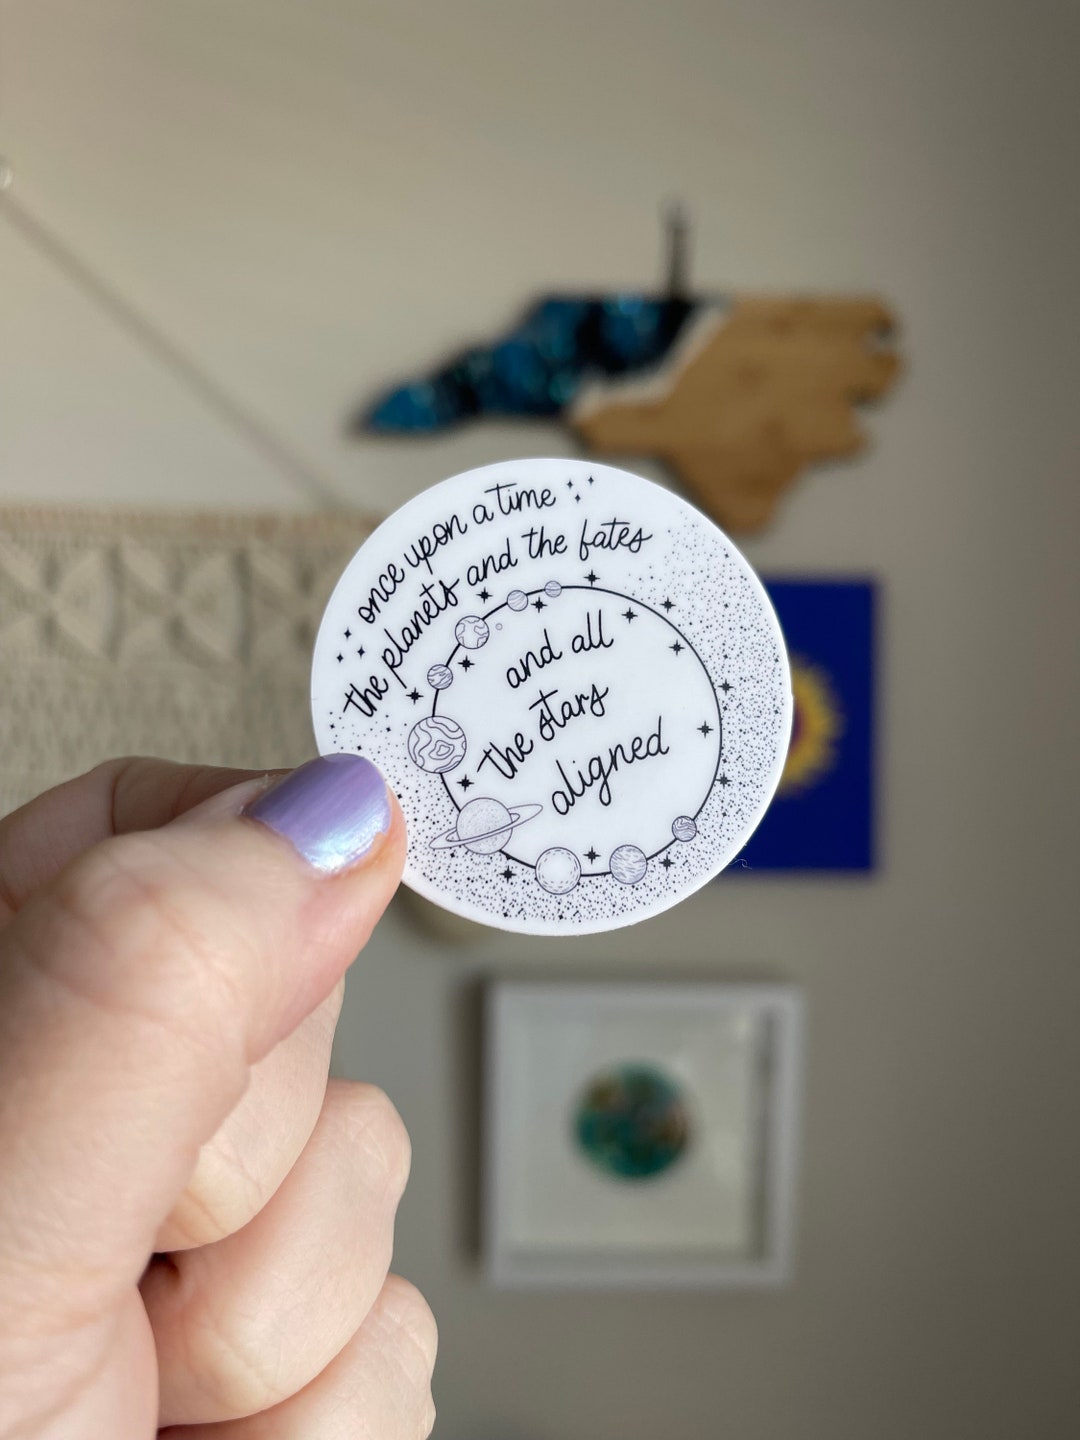 once upon a time
the planets and the fates
and all
the stars
aligned